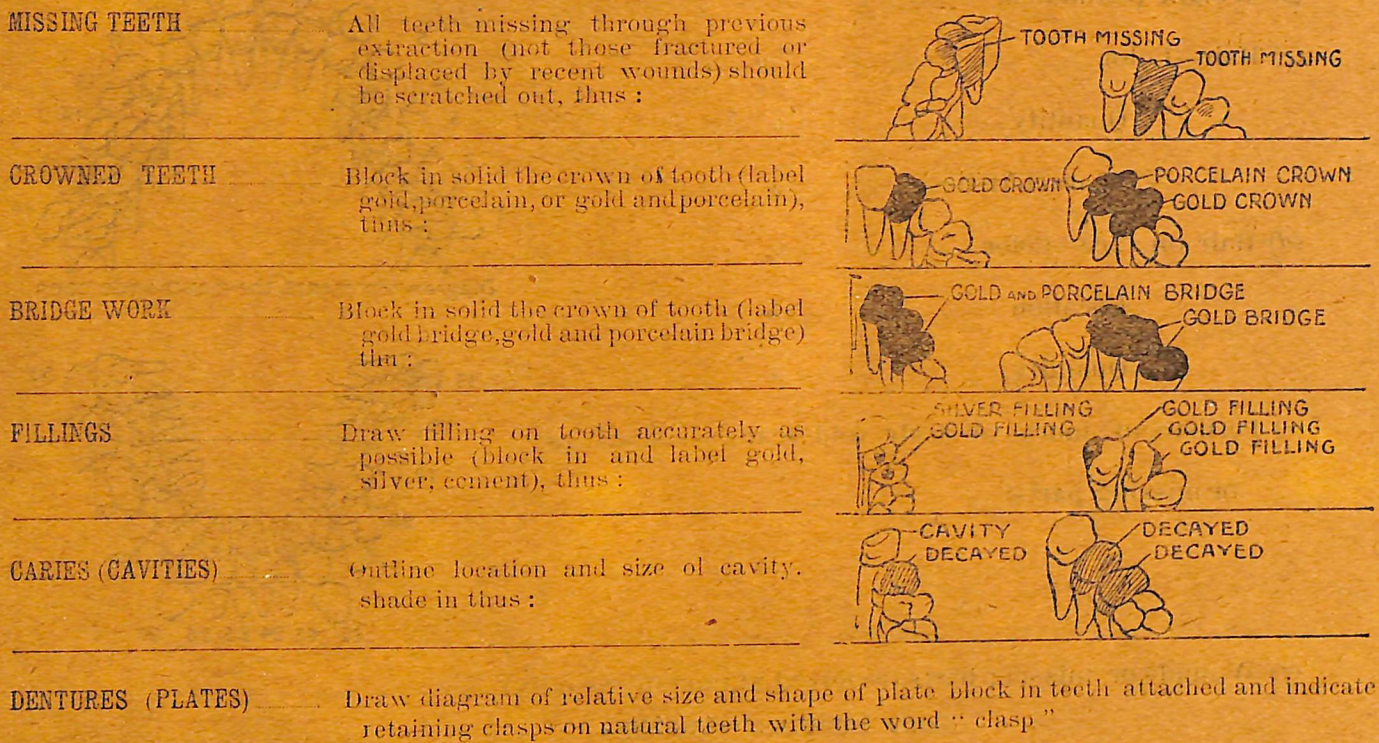 MISSING TEETH
All teeth missing through previous
extraction (not those fractured or
displaced by recent wounds) should
be scratched out, thus :
TOOTH MISSING
TOOTH MISSING
CROWNED TEETH
Block in solid the crown of tooth (label
gold, porcelain, or gold and porcelain),
thus :
GOLD CROWN
PORCELAIN CROWN
GOLD CROWN
BRIDGE WORK
Block in solid the crown of tooth (label
gold bridge, gold and porcelain bridge)
thu :
GOLD AND PORCELAIN BRIDGE
GOLD BRIDGE
FILLINGS
Draw filling on tooth accurately as
possible (block in and label gold,
silver, cement), thus :
SILVER FILLING
GOLD FILLING
GOLD FILLING
GOLD FILLING
GOLD FILLING
CARIES (CAVITIES)
Outline location and size of cavity.
shade in thus :
CAVITY
DECAYED
DECAYED
DECAYED
DENTURES (PLATES)
Draw diagram of relative size and shape of plate block in teeth attached and indicate
retaining clasps on natural teeth with the word " clasp "